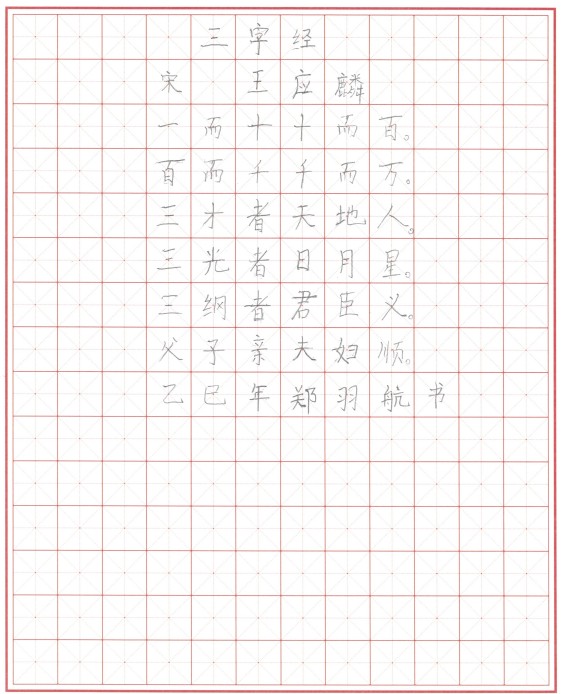 三字经
宋 王应麟
一而十十而百。
百而千千而万。
三才者天地人。
三光者日月星。
三纲者君臣义。
父子亲夫妇顺。
乙巳年郑羽航书